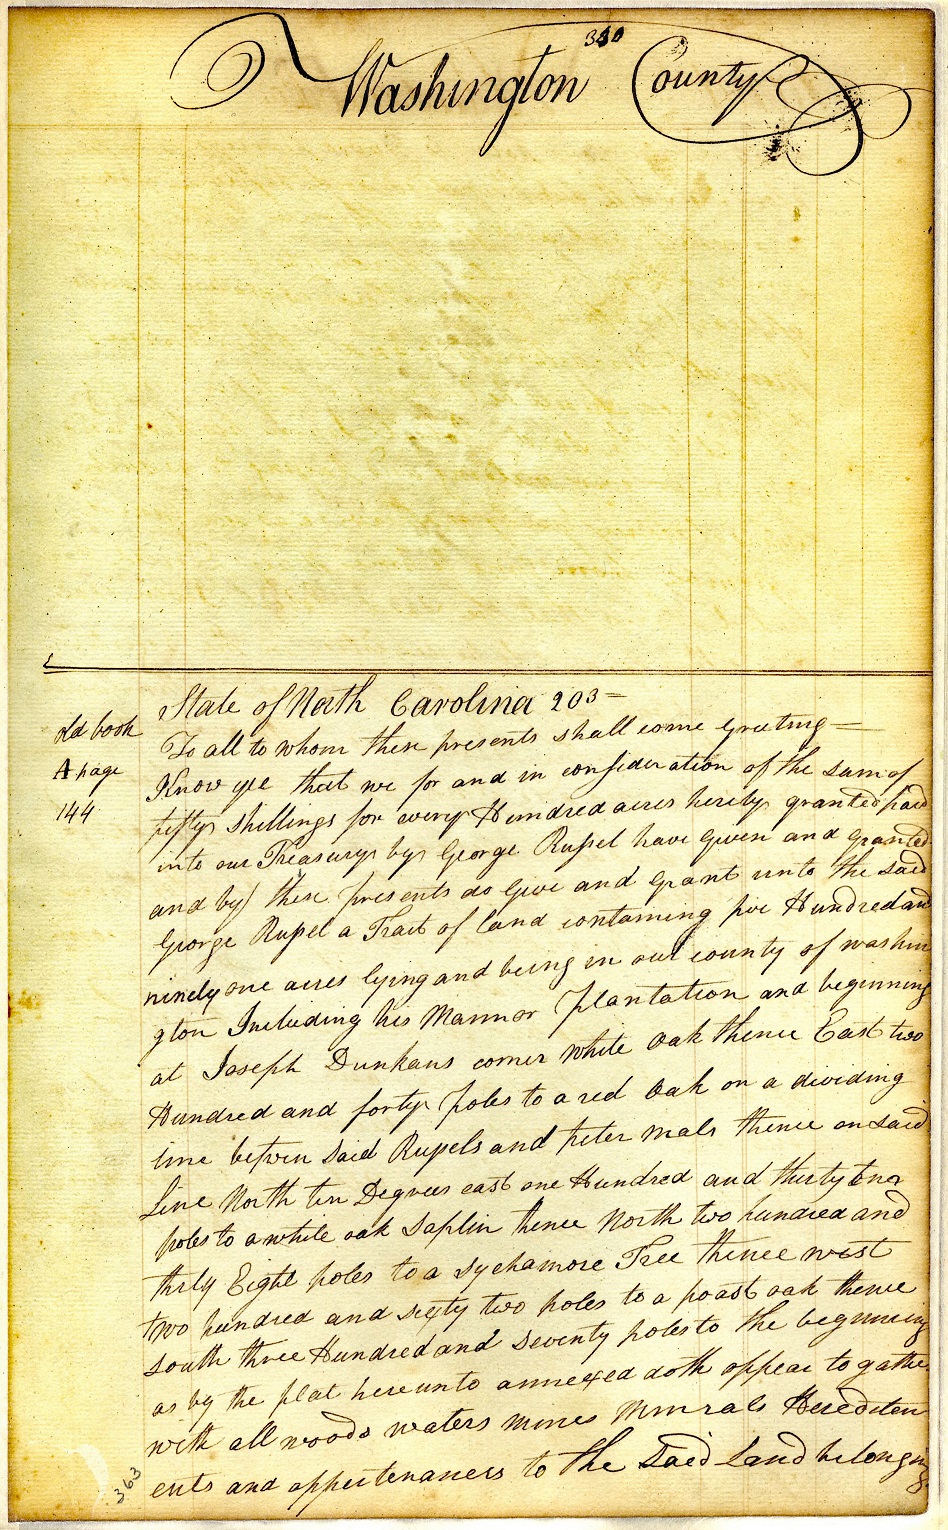 330
Washington County
State of North Carolina 203=
old book
A page
144
To all to whom these presents shall come Greeting=
Know ye that we for and in consideration of the sum of
fifty Shillings for every Hundred acres hereby granted paid
into our Treasury by George Rusel have given and granted
and by these presents do Give and Grant unto the said
George Rusel a Tract of land containing five Hundred and
ninely one acres lying and being in out county of washin
gton Including his Mannor plantation and beginning
at Joseph Dunkans corner white Oak thence East two
Hundred and forty poles to a red Oak on a dividing
line betwen Said Rusels and peter mals thence on said
line North ten Degrees east one Hundred and thirty
poles to a white oak Saplin thence North two hundred and
thrty Eight poles to a Sychamore Tree thence west
two hundred and sixty two poles to a poast oak thence
South three Hundred and Seventy poles to the beginning
as by the plat hereunto annexed doth appear to gathe
with all woods waters mines Minrals Herediten
ents and appertenances to the Said Land belonging
363